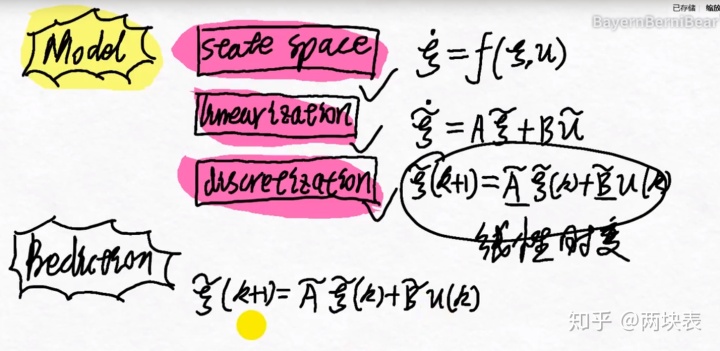 已存储 缩放
BayernBerniBear
Model
state space ξ̇ = f(ξ,u)
linearization ξ̃̇ = Aξ̃ + Bũ
discretization ξ̃(k+1) = Ãξ̃(k) + B̃u(k)
线性时变
Prediction
ξ̃(k+1) = Ãξ̃(k) + B̃u(k)
知乎 @两块表